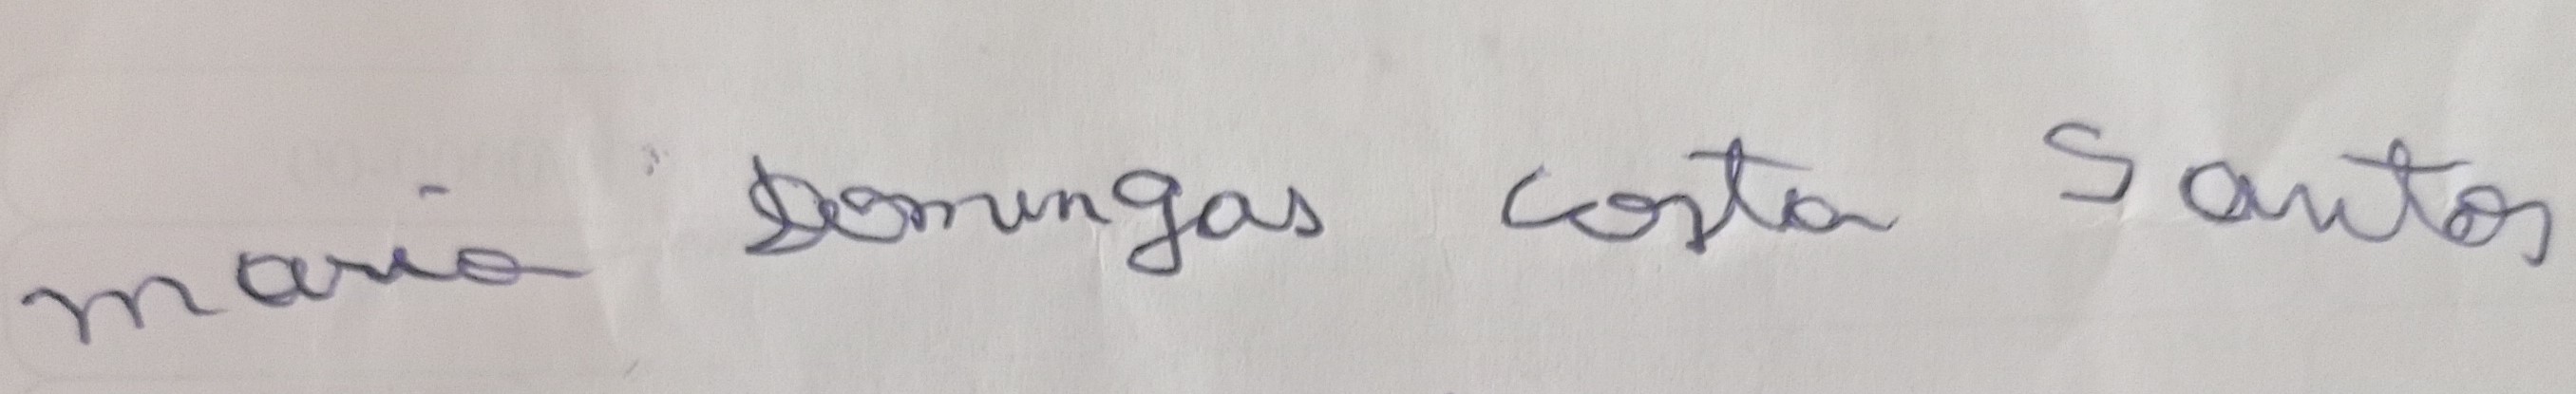 maria Domingas costa Santos